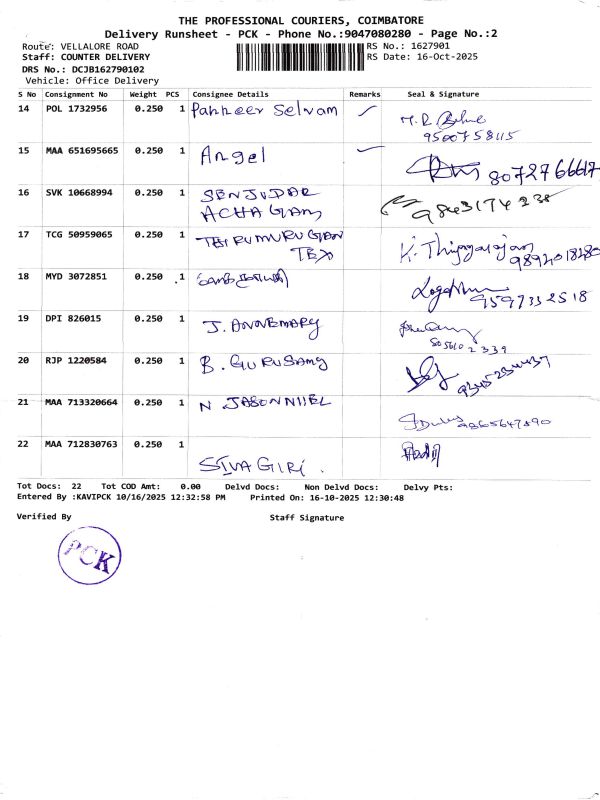 THE PROFESSIONAL COURIERS, COIMBATORE
Delivery Runsheet - PCK - Phone No.:9047080280 - Page No.:2
Route: VELLALORE ROAD RS No.: 1627901
Staff: COUNTER DELIVERY RS Date: 16-Oct-2025
DRS No.: DCJB162790102
Vehicle: Office Delivery
S No Consignment No Weight PCS Consignee Details Remarks Seal & Signature
14 POL 1732956 0.250 1 Panneer Selvam
9500758115
15 MAA 651695665 0.250 1 Angel
8072766617
16 SVK 10668994 0.250 1 SENJUDAR
ACHAGAM 9843174238
17 TCG 50959065 0.250 1 THIRUMURUGAN K. Thiyagarajan
TEX 9892018280
18 MYD 3072851 0.250 1
9597332518
19 DPI 826015 0.250 1 J. ANNEMARY
8056102339
20 RJP 1220584 0.250 1 B. GURUSAMY
21 MAA 713320664 0.250 1 N JASON NIEL
9865647890
22 MAA 712830763 0.250 1
SIVAGIRI.
Tot Docs: 22 Tot COD Amt: 0.00 Delvd Docs: Non Delvd Docs: Delvy Pts:
Entered By :KAVIPCK 10/16/2025 12:32:58 PM Printed On: 16-10-2025 12:30:48
Verified By Staff Signature
PCK